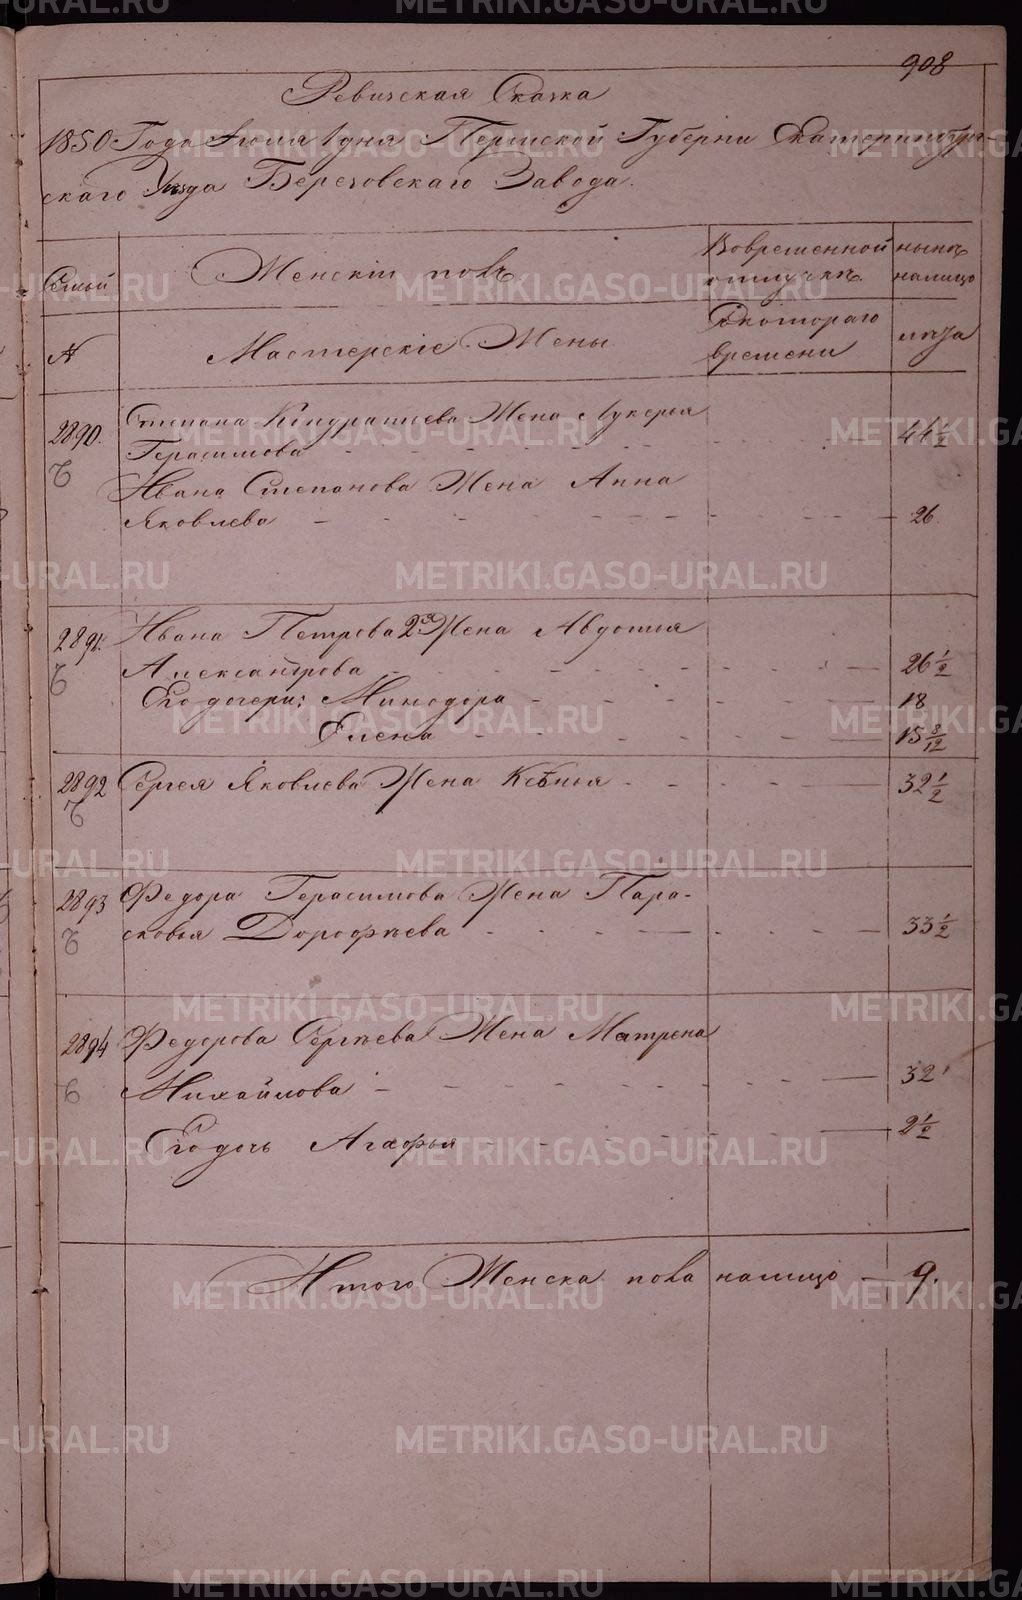 908
Ревизская Сказка
1850 Года Июля 1 дня Пермской Губерни Екатеринбург-
скаго Уезда Березовскаго Завода.
Семьи
Женскій полъ
Вовременной отлучкѣ.
нынѣ налицо
№
Мастерскіе Жены
Скотораго времени
лѣта
2890. Степана Кондратьева Жена Лукерья
Герасимова 44 1/2
Ивана Степанова Жена Анна
Яковлева 26
2891. Ивана Петрова 2я Жена Авдотья
Александрова 26 1/2
Его дочери: Минодора 18
Елена 15 8/12
2892 Сергея Яковлева Жена 32 1/2
2893 Федора Герасимова Жена Пара-
сковья Дорофѣева 33 1/2
2894 Федорова Сергѣева Жена Матрена
Михайлова 32
Его дочь Агафья 2 1/2
Итого Женска пола налицо 9.
METRIKI.GASO-URAL.RU